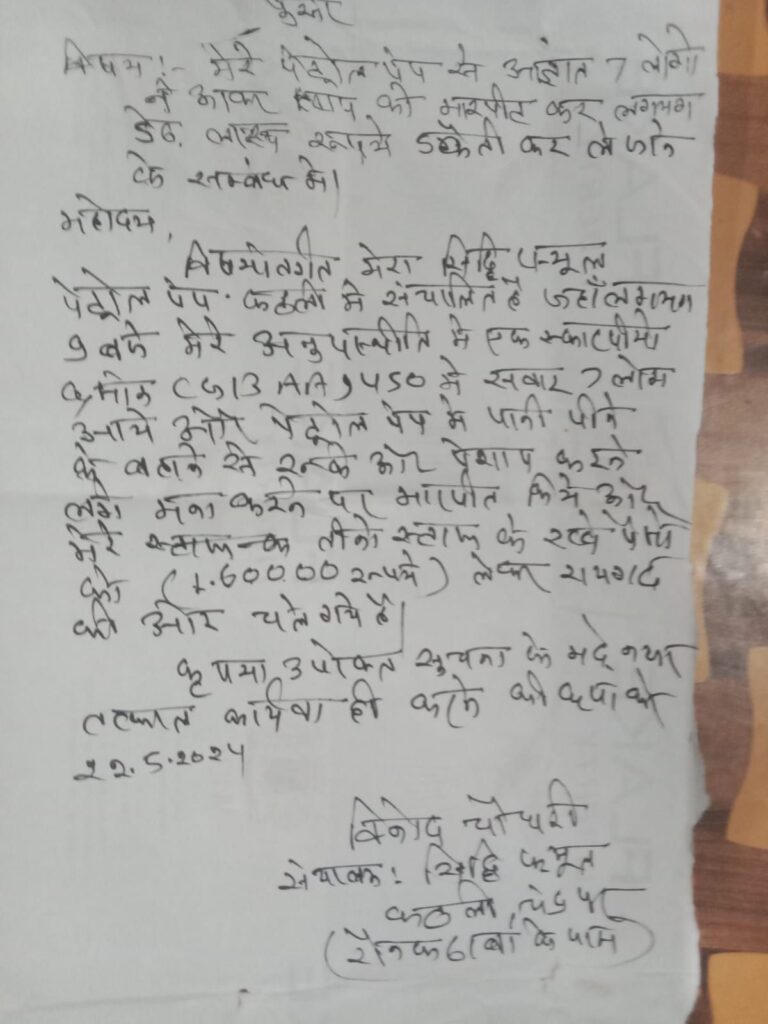 विषय :- मेरे पेट्रोल पंप से अज्ञात 7 लोगो
ने आकर स्टाप को मारपीट कर लगभग
डेढ़ लाख रूपये डकैती कर ले जाने
के सम्बंध मे।
महोदय,
विषयांतर्गत मेरा सिद्धि फ्यूल
पेट्रोल पंप कठली मे संचालित है जहाँ लगभग
9 बजे मेरे अनुपस्थीति मे एक स्कारपीयो
क्रमांक CG13 AA 9450 मे सवार 7 लोग
आये और पेट्रोल पंप मे पानी पीने
के बहाने से रूके और पेशाप करने
लगे मना करने पर मारपीत किये और
मेरे तीनो स्टाफ के रखे पैसो
को (1.60000 रूपये) लेकर रायगढ़
की ओर चले गये है।
कृपया उपरोक्त सुचना के मद्दे नजर
तत्काल कार्यवाही करने की कृपा करे
22.5.2024
विनोद चौधरी
संचालक : सिद्धि फ्यूल
कठली